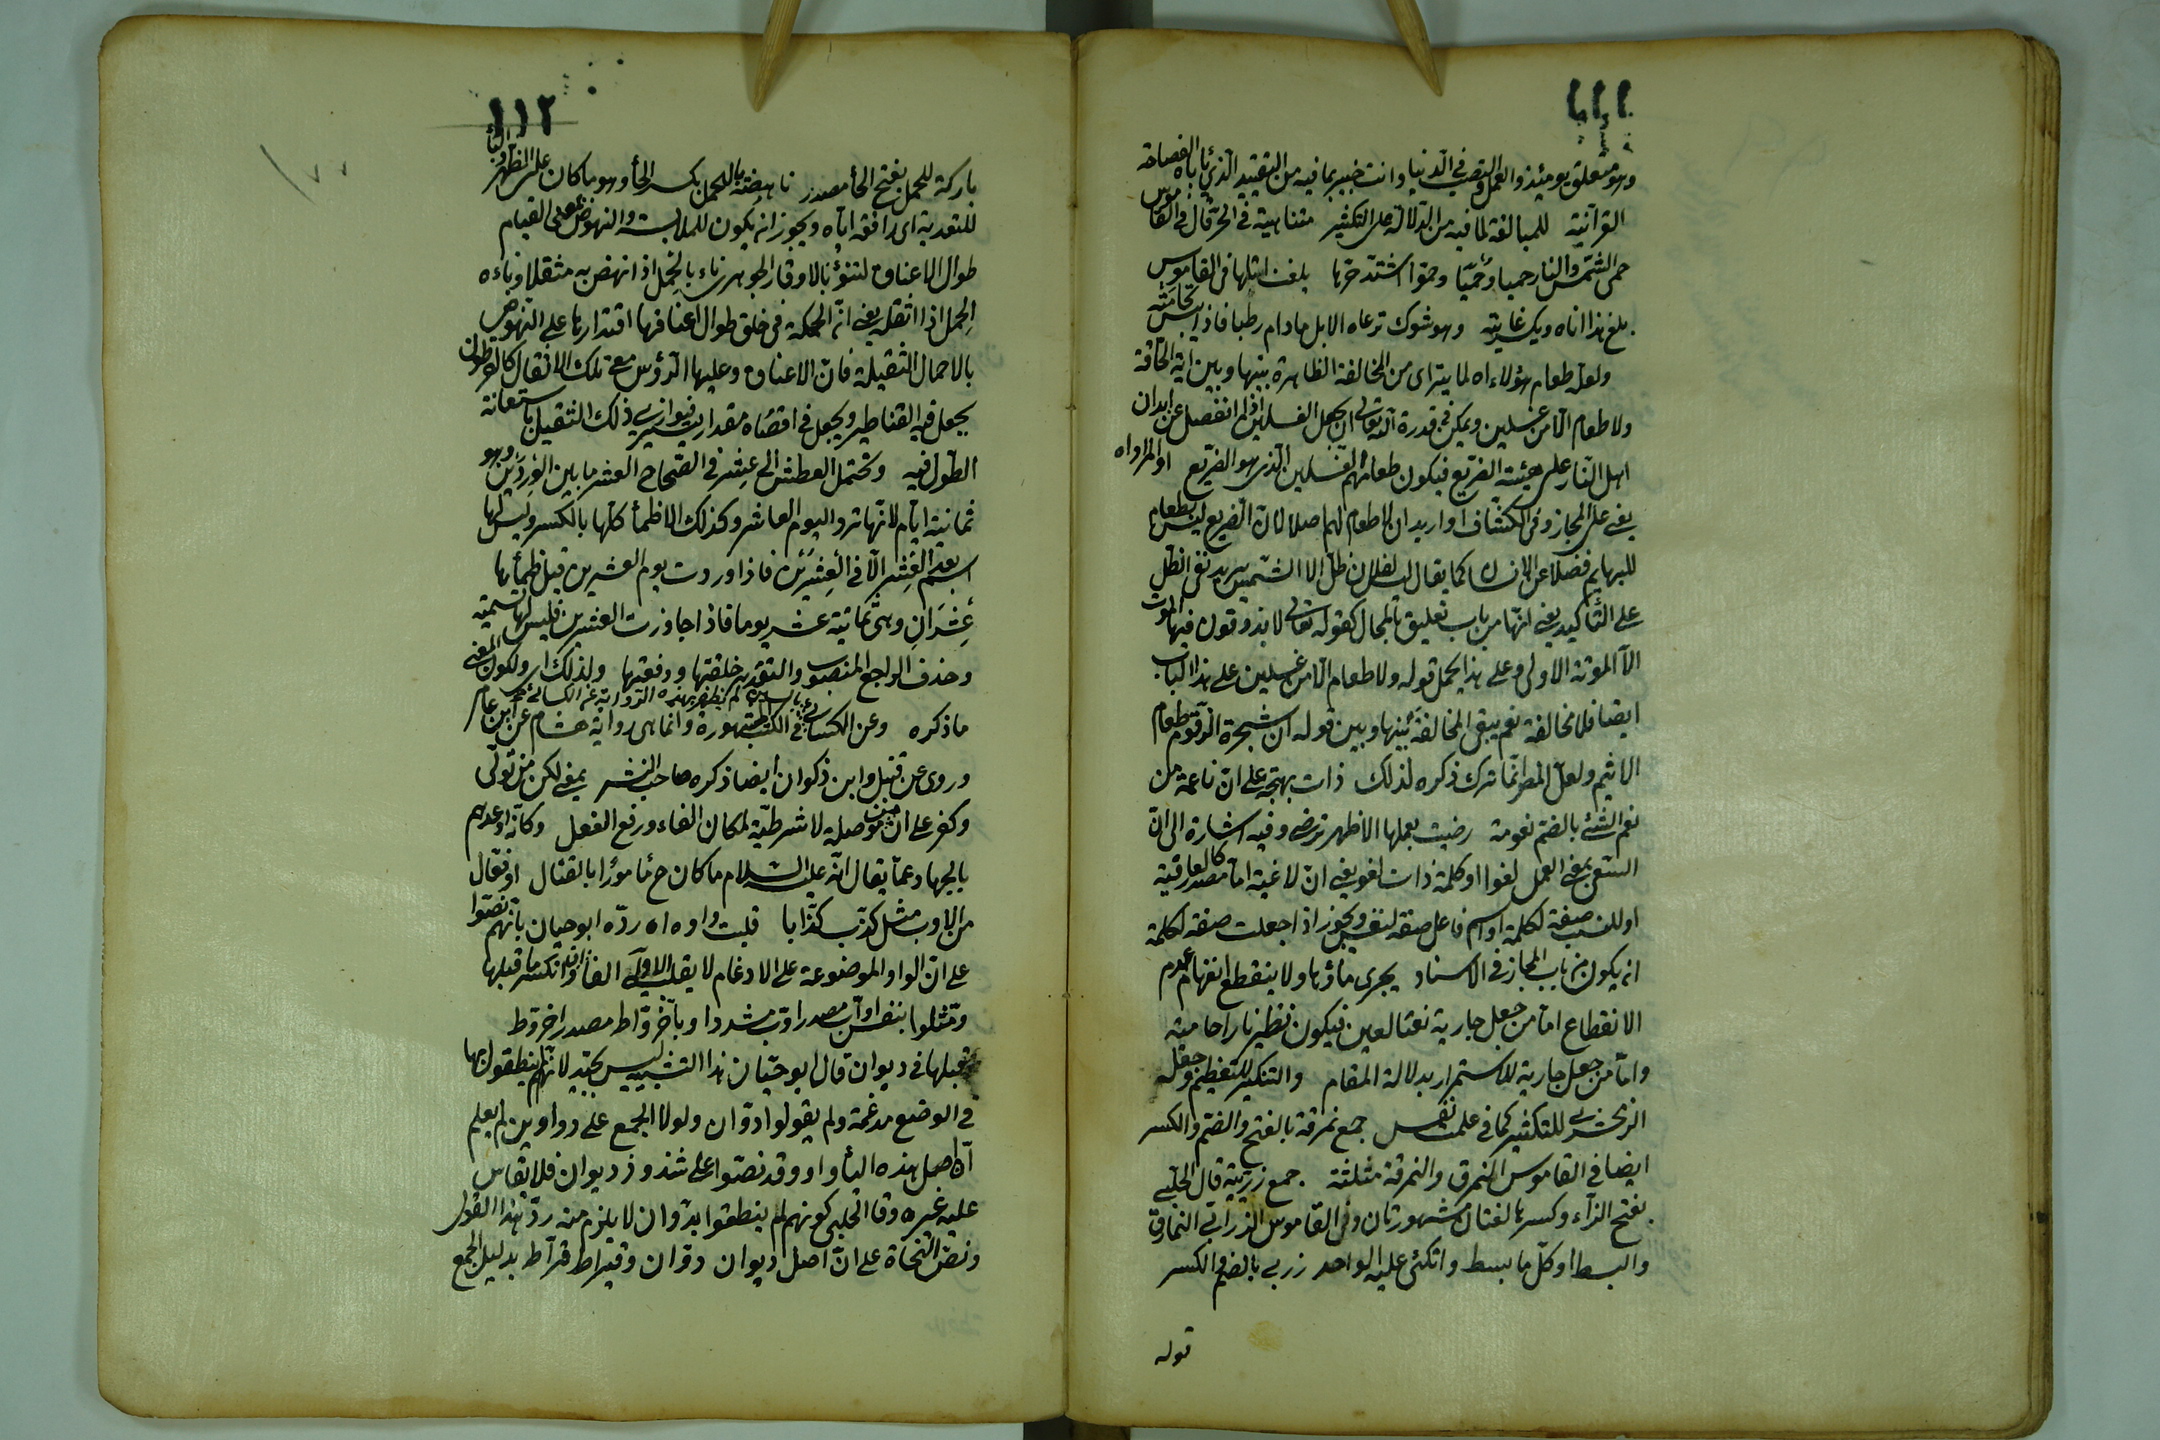 ١١١
وهو متعلق يومئذ والعمل والنصب في الدنيا وانت خبير بما فيه من التقييد الذي يأباه الفصاحة
القرآنية للمبالغة لما فيه من الدلالة على التكثير متناهية في الحر قال في القاموس
حمى الشمس والنار حميا وحميّا وحموا اشتد حرها بلغت اناها في القاموس
بلغ هذا اناه ويكسر غايته وهو شوك ترعاه الابل مادام رطبا فاذا يبس تحامته
ولعل طعام هؤلاء اه لما يترا اى من المخالفة الظاهرة بينها وبين آية الحاقة
ولا طعام الا من غسلين ويمكن في قدرة الله تعالى ان يجعل الغسلين اذا انفصل عن ابدان
اهل النار على هيئة الضريع فيكون طعامهم الغسلين الذي هو الضريع او المراد اه
يعنى على المجاز وفى الكشاف او اريد ان لا طعام لهم اصلا لان الضريع ليس بطعام
للبهايم فضلا عن الانسان كما يقال ليس لفلان ظل الا الشمس يريد نفى الظل
على التأكيد يعنى انها من باب تعليق بالمحال كقوله تعالى لا يذوقون فيها الموت
الا الموتة الاولى وعلى هذا يحمل قوله ولا طعام الا من غسلين على هذا الباب
ايضا فلا مخالفة نعم يبقى المخالفة بينها وبين قوله ان شجرة الزقوم طعام
الاثيم ولعل المص انما ترك ذكره لذلك ذات بهجة على ان ناعمة من
نعم الشئ بالضم نعومة رضيت بعملها الاظهر ترضى وفيه اشارة الى ان
السعى بمعنى العمل لغوا او كلمة ذات لغو يعنى ان لاغية اما مصدر كالعافية
او للنسب صفة لكلمة او اسم فاعل صفة لنفس ويجوز اذا جعلت صفة لكلمة
انه يكون من باب المجاز في الاسناد يجرى ماؤها ولا ينقطع انفهام عدم
الانقطاع اما من جعل جارية نعتا لعين فيكون نظير نارا حامية
واما من جعل جارية للاستمرار بدلالة المقام والتنكير للتعظيم وجعله
الزمخشرى للتكثير كما في علمت نفس جمع نمرقة بالفتح والضم والكسر
ايضا في القاموس النمرق والنمرقة مثلثة جمع زربية قال الحلبى
بفتح الزاء وكسرها لغتان مشهورتان وفى القاموس الزرابى النمارق
والبسط او كل ما بسط واتكئ عليه الواحد زربى بالضم والكسر
قوله
١١٢
باركة للحمل بفتح الحاء مصدر ناهضة بالحمل بكسر الحاء وهو ما كان على الظهر والباء
للتعدية اى رافقه اياه ويجوز انه يكون للملابسة والنهوض بمعنى القيام
طوال الاعناق لتنؤ بالاوقار الجوهرى ناء بالحمل اذا نهض به مثقلا وناءه
الحمل اذا اثقله يعنى ان الحكمة في خلق طوال اعناقها اقتدارها على النهوض
بالاحمال الثقيلة فان الاعناق وعليها الرؤس مع تلك الاثقال كالقرطون
يجعل فيه القناطير ويجعل في اقصاه مقدار يسير فيوازى ذلك الثقيل باستعانة
الطول فيه وتحتمل العطش الى عشر في الصحاح العشر ما بين الوردين وهو
ثمانية ايام لانها ترد اليوم العاشر وكذلك الاظمأ كلها بالكسر وليس لها
اسم بعد العشر الا في العشرين فاذا وردت يوم العشرين قيل ظمأها
عشران وهى ثمانية عشر يوما فاذا جاوزت العشرين فليس لها تسمية
وحذف الراجع المنصوب والتقدير خلقتها ورفعتها ولذلك اى ولكون المعنى
ماذكره وعن الكسائى في الكتب المشهورة وانما هى رواية هشام عن ابن عامر
لم نظفر بهذه الرواية عن الكسائى
وروى عن قنبل وابن ذكوان ايضا ذكره صاحب النشر بمعنى لكن من تولى
وكفر على ان من موصلة لا شرطية لمكان الفاء ورفع الفعل وكانه اوعدهم
بالجهاد عما يقال انه عليه السلام ما كان ح مأمورا بالقتال او فيعال
من الاوب مثل كذب كذابا قلبت واوه اه رده ابو حيان بانهم نصوا
على ان الواو الموضوعة على الادغام لا يقلب الاولى الفا وان انكسر ما قبلها
ومثلوا بنفس اواب مصدر اوّب مشددا وباخروّاط مصدر اخروط
قبلها في ديوان قال ابو حيان هذا التشبيه ليس بجيد لانهم لم ينطقوا بها
في الوضع مدغمة ولم يقولوا دوّان ولولا الجمع على دواوين لم يعلم
ان اصل هذه الياء واو وقد نصوا على شذوذ ديوان فلا يقاس
عليه غيره وقال الحلبى كونهم لم ينطقوا بدوان لا يلزم منه رد هذا القول
ونص النحاة على ان اصل ديوان دوّان وقيراط قراط بدليل الجمع